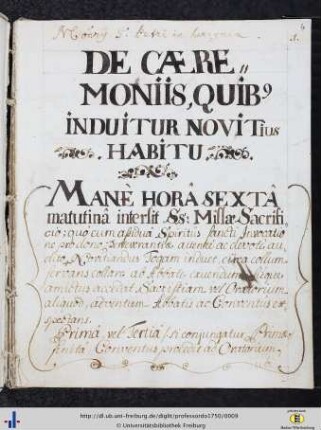 DE CÆRE„
MONIIS, QUIB9
INDUITUR NOVITius
HABITU
MANÈ HORÂ SEXTÂ
matutinâ intersit Ss: Missæ Sacrifi,
cio; quo cum assiduâ Spiritûs Sancti Invocatio
ne pro dono Perseverantiæ attentè ac devotè au,
dito, Novitiandus Togam induet, circa collum
amictus accedat Sacristiam vel Oratorium
aliquod, adventum Abbatis ac Conventûs ex,
pectans.
Primâ vel Tertiâ / si conjungatur Primæ
finitâ / Conventus procedat ad Oratorium
http://dl.ub.uni-freiburg.de/diglit/professordis1750/0009
© Universitätsbibliothek Freiburg